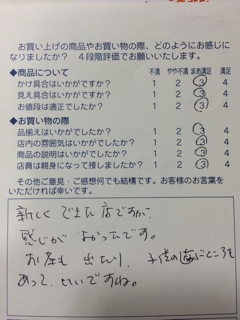 お買い上げの商品やお買い物の際、どのようにお感じに
なりましたか？ 4段階評価でお願いいたします。
◆商品について 不満 やや不満 まあ満足 満足
かけ具合はいかがですか？ 1 2 3 4
見え具合はいかがですか？ 1 2 3 4
お値段は適正でしたか？ 1 2 3 4
◆お買い物の際
品揃えはいかがでしたか？ 1 2 3 4
店内の雰囲気はいかがでしたか？ 1 2 3 4
商品の説明はいかがでしたか？ 1 2 3 4
店員は親身になって接しましたか？ 1 2 3 4
その他ご意見・ご感想何でも結構です。お客様のお言葉を
いただければ幸いです。
新しくできた店ですが、
感じがよかったです。
お茶も出たり、子供の
あって、いいですね。